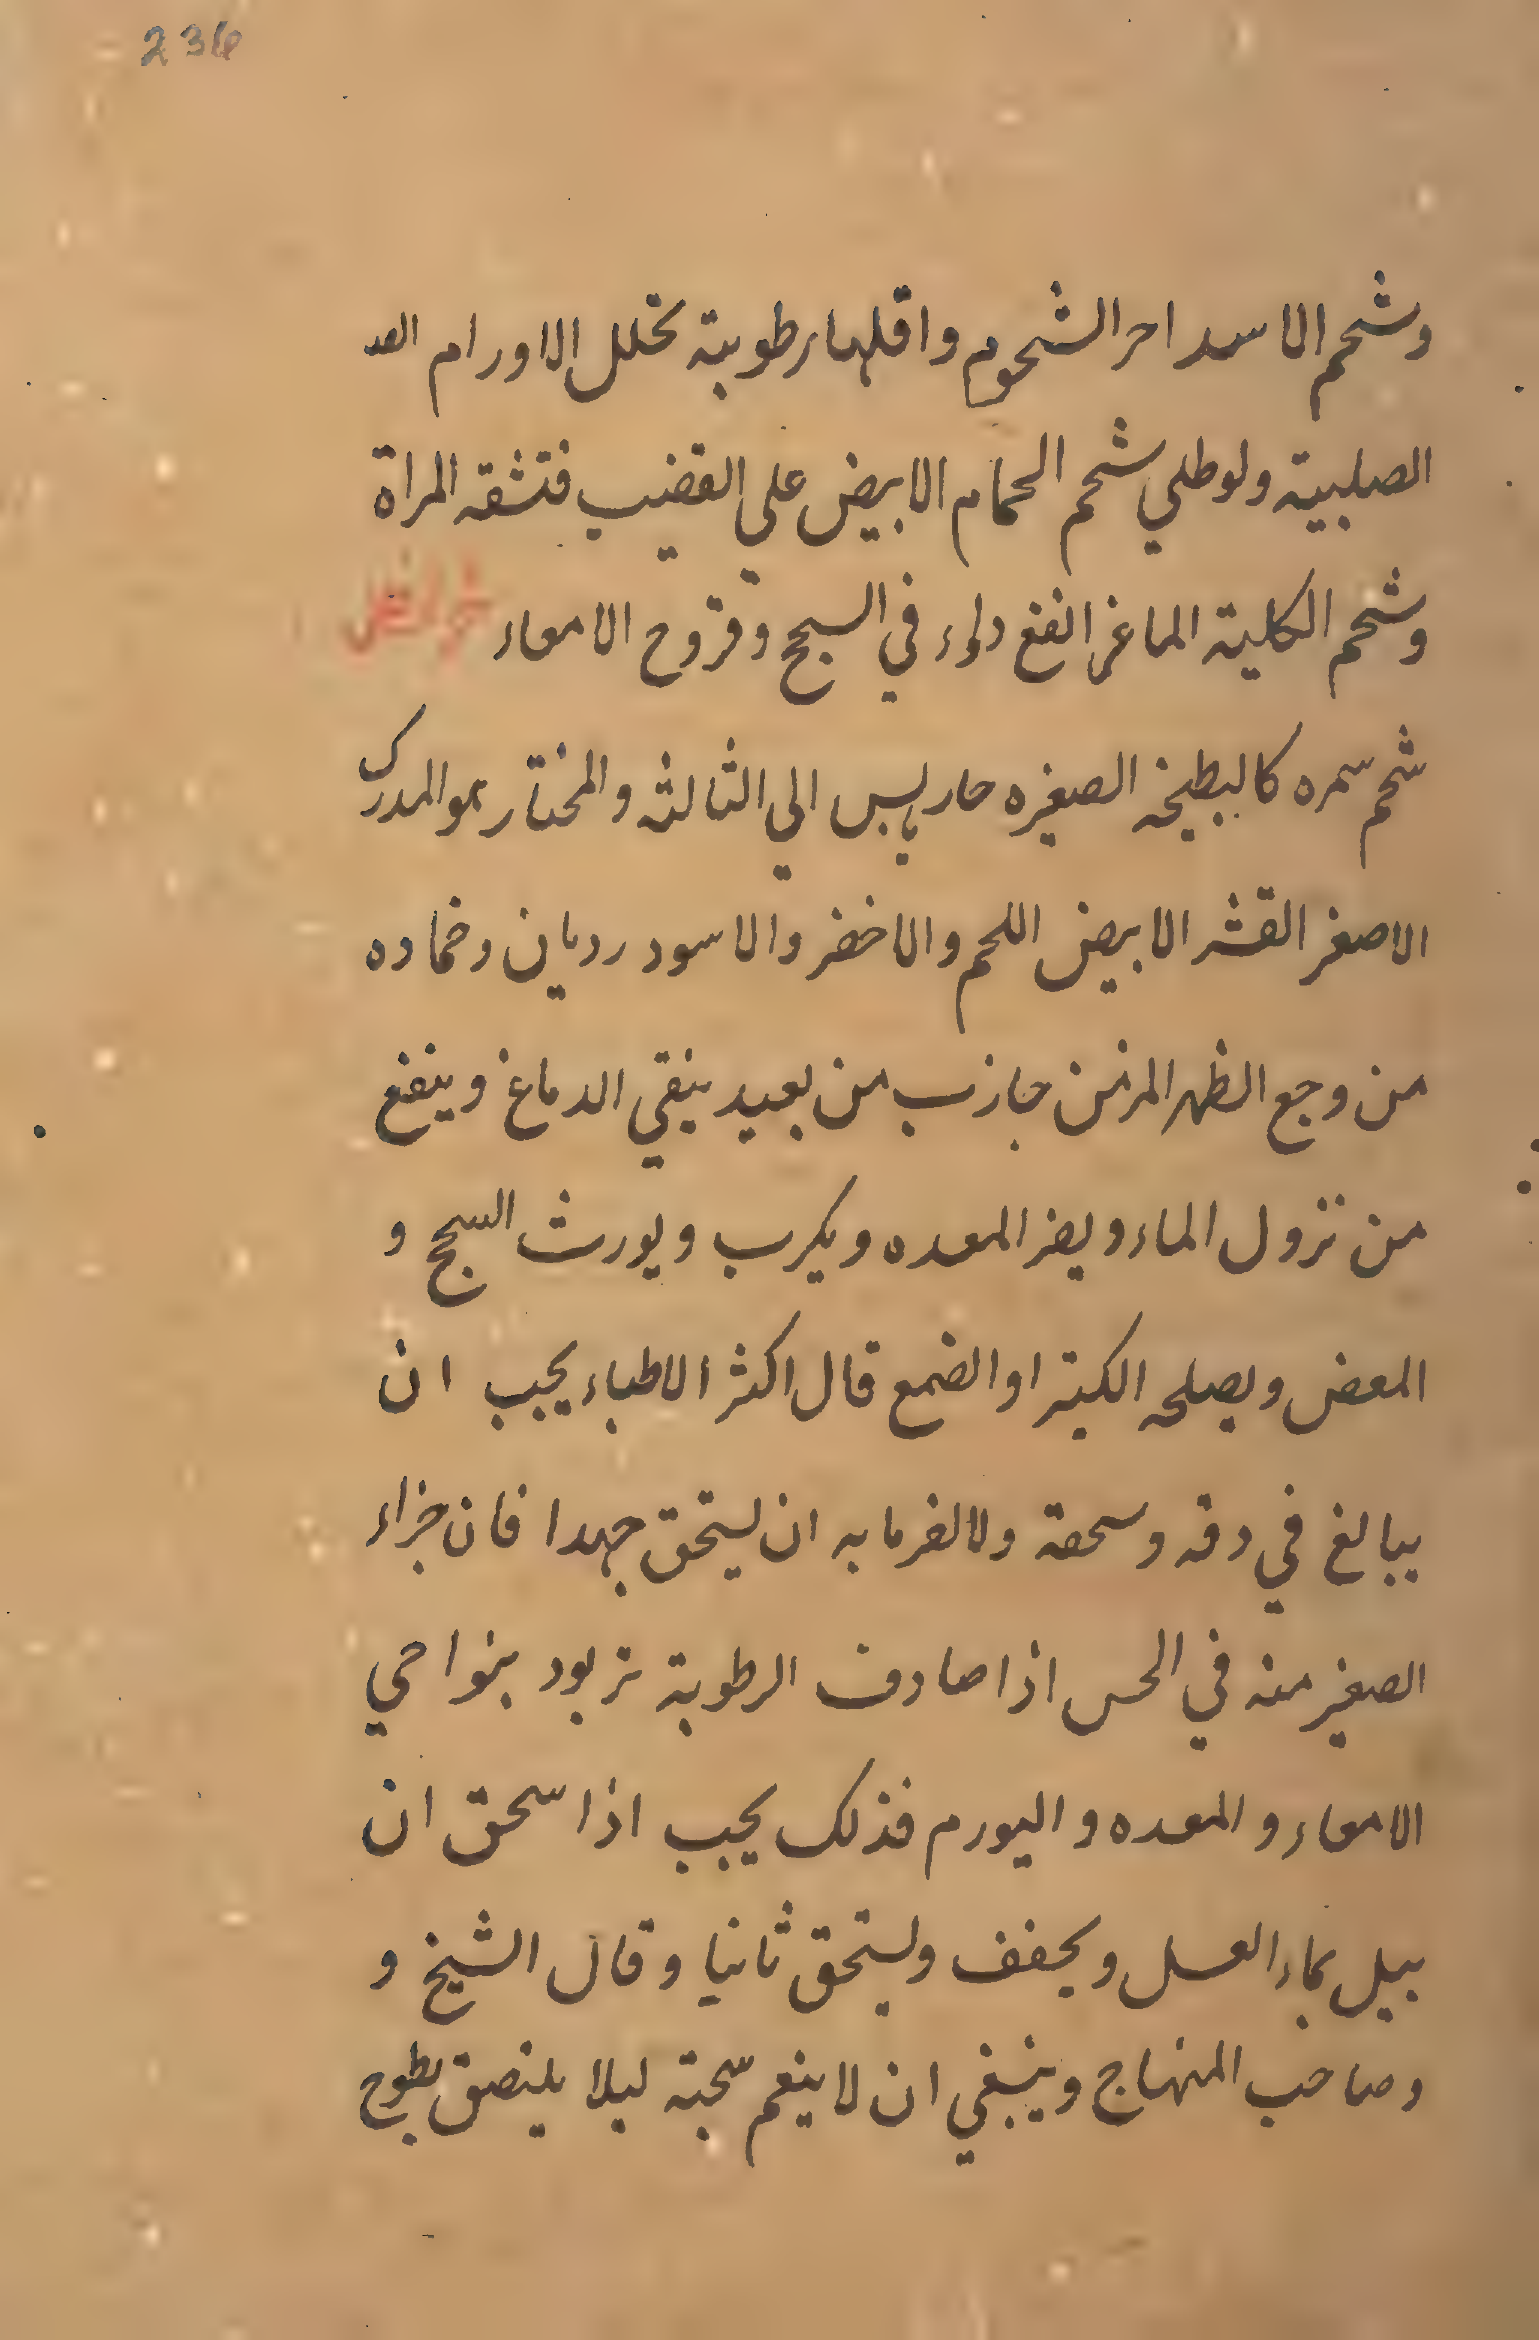 236
وشحم الاسد احر الشحوم واقلها رطوبة تحلل الاورام الصد
الصلبية ولو طلي شحم الحمام الابيض على القضيب فتشقه المراة
وشحم الكلية الماغر انفع دواء في السحج وقروح الامعاء
شحم سمره كالبطيخه الصغيره حار يابس الي الثالثه والمختار هو المدرك
الاصغر القشر الابيض اللحم والاخضر والاسود رديان وضماده
من وجع الظهر المزمن جازب من بعيد ينقي الدماغ وينفع
من نزول الماء ويضر المعده ويكرب ويورث السحج و
المغص ويصلحه الكتيرا او الضمع قال اكثر الاطباء يجب ان
يبالغ في دقه وسحقة ولا الغرما به ان يستحق جهدا فان جزاء
الصغير منه في الحس اذا صادف الرطوبة تربود بنواحي
الامعاء والمعده واليورم فذلك يجب اذا سحق ان
يبل بماء العسل ويجفف ويستحق ثانيا وقال الشيخ و
وصاحب المنهاج وينبغي ان لا ينعم سحبته ليلا يلتصق